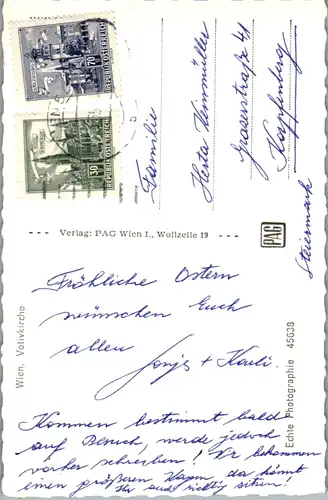 Fröhliche Ostern
wünschen Euch
allen
Sonja + Karli.
Kommen bestimmt bald
auf Besuch, werde jedoch
vorher schreiben! Wir bekommen
einen größeren Wagen, da könnt
Ihr auch richtig sitzen!
Familie
Herta
Graserstraße 41
Kapfenberg
Steiermark
--- Verlag: PAG Wien I., Wollzeile 19 ---
PAG
Wien, Votivkirche
Echte Photographie 45638
REPUBLIK ÖSTERREICH
70
REPUBLIK ÖSTERREICH
50